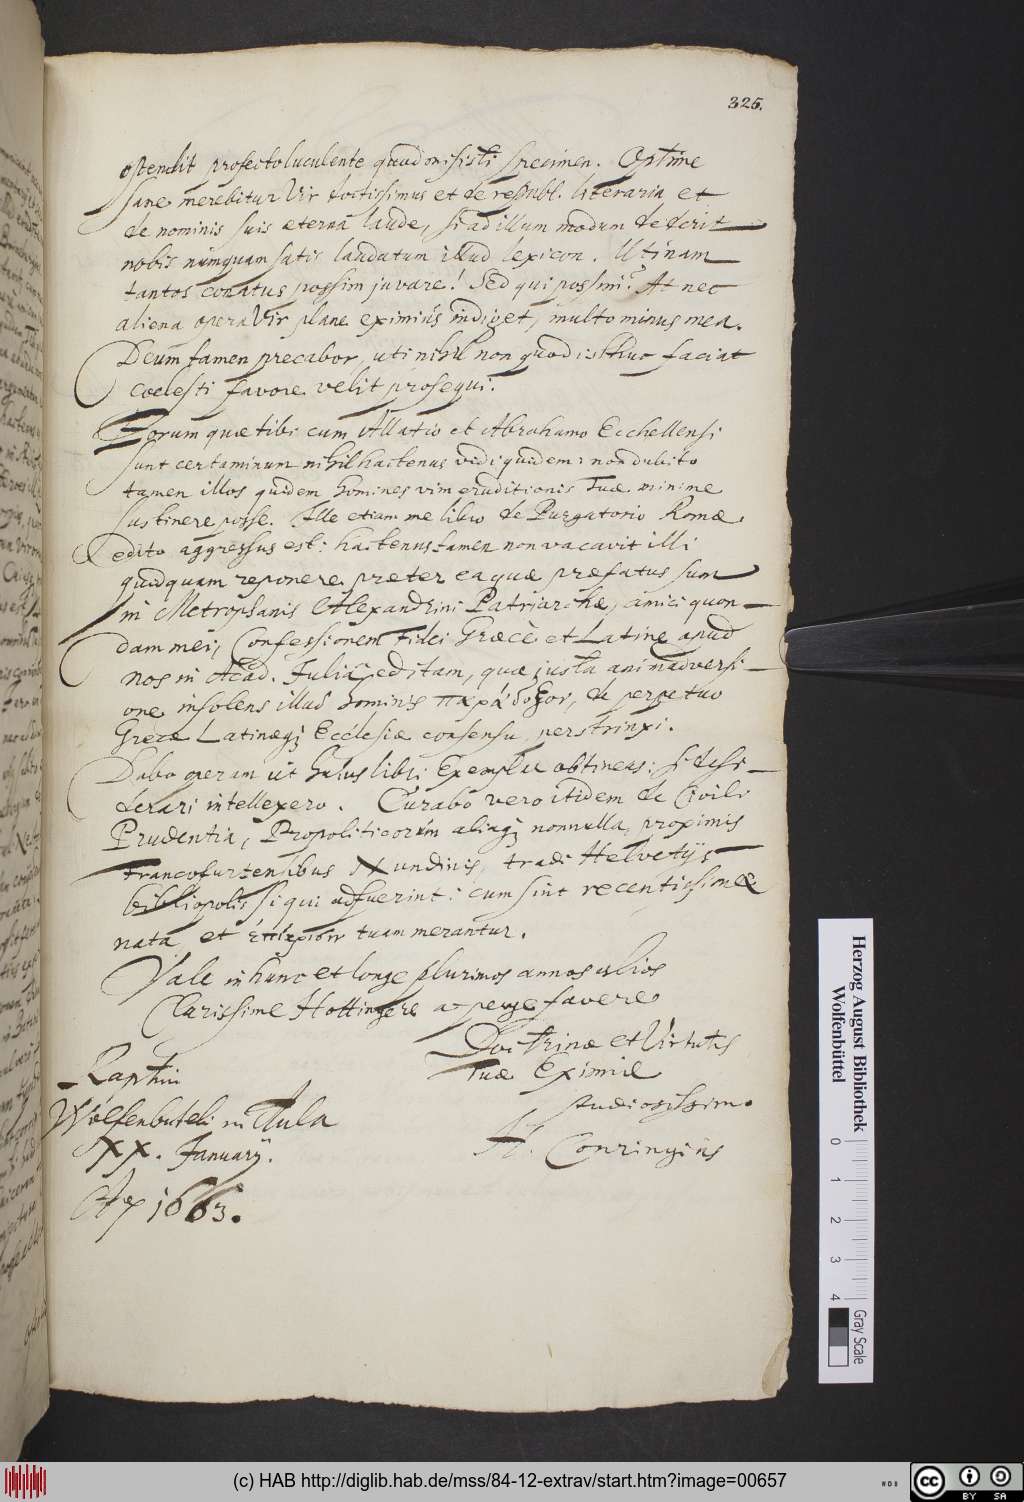 325.
ostendit profecto luculente quod misisti specimen. Optime
sane merebitur Vir doctissimus et de republ. literaria et
de nominis suis eterna laude, si ad illum modum dederit
nobis numquam satis laudatum illud lexicon. Utinam
tantos conatus possim juvare! Sed qui possim? At nec
aliena opera Vir plane eximius indiget, multo minus mea.
Deum tamen precabor, uti nihil non quod isthuc faciat
coelesti favore velit prosequi.
Eorum quæ tibi cum Allatio et Abrahamo Ecchellensi
sunt certaminum nihil hactenus vidi quidem: non dubito
tamen illos quidem homines vim eruditionis Tuæ minime
sustinere posse. Ille etiam me libro de Purgatorio Romæ
edito aggressus est: hactenus tamen non vacavit illi
quidquam reponere præter ea quæ præfatus sum
in Metrophanis Alexandrini Patriarchæ, amici quon-
dam mei, Confessionem Fidei Græcè et Latine apud
nos in Acad. Julia editam, quæ justa animadversi-
one insolens illud hominis παράδοξον, de perpetuo
Grecæ Latinæq; Ecclesiæ consensu, perstrinxi.
Dabo operam ut hujus libri Exemplar obtineas: si desi-
derari intellexero. Curabo vero itidem de Civili
Prudentia, Propoliticorum aliaq; nonnulla, proximis
Francofurtensibus Nundinis, tradi Helvetijs
bibliopolis si qui adfuerint: cum sint recentissime
nata et ἐπίκρισιν tuam merantur.
Vale in hunc et longe plurimos annos alios
Clarissime Hottingere ac perge favere
Doctrinæ et Virtutis
Tuæ Eximiæ
studiosissimo
H. Conringius
Raptim
Wolfenbuteli in Aula
XX. Januarij.
Aº 1663.
Herzog August Bibliothek
Wolfenbüttel
0 1 2 3 4
Gray Scale
(c) HAB http://diglib.hab.de/mss/84-12-extrav/start.htm?image=00657
cc BY SA